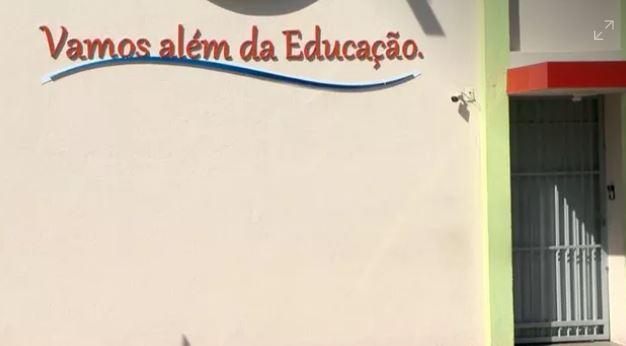 Vamos além da Educação.